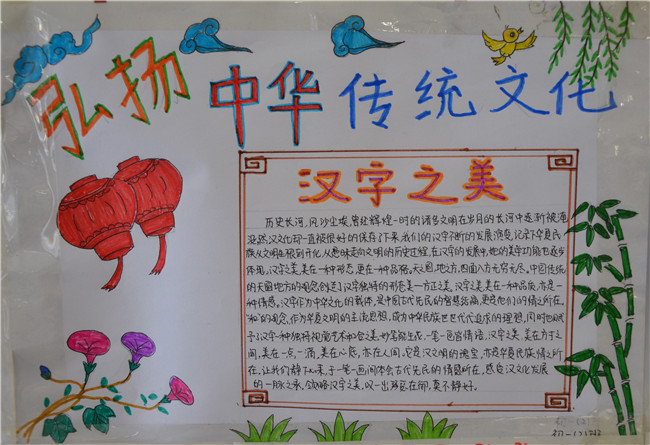 弘扬中华传统文化
汉字之美
历史长河,风沙尘埃,曾经辉煌一时的诸多文明在岁月的长河中逐渐被淹
没,然汉文化却一直被很好的保存了下来,我们的汉字不断的发展演变,记录下华夏民
族从文明启蒙到开化,从愚昧走向文明的历史过程,在汉字的发展中,她的美学功能也逐步
体现,汉字之美,美在一种形态,更在一种品格,天之圆,地之方,四面八方无穷尽。中国传统
的天圆地方的观念创造了汉字独特的形色美一方正之美,汉字之美,美在一种品质,亦是一
种情感。汉字作为中华文化的载体,是中国古代先民的智慧结晶,更是他们的情之所在。
"和"的观念,作为华夏文明的主流思想,成为中华民族世世代代追求的理想,同时也赋
予了汉字一种独特视觉艺术和合之美,妙笔能生花,一笔一画皆情语,汉字之美,美在方寸之
间,美在一点,一滴,美在心意,亦在人间,它是汉文明的瑰宝,亦是华夏民族情之所
在,让我们静下心来,于一笔一画间体会古代先民的情感所在,感受汉文化发展
的一脉之承,领略汉字之美,叹一出落已在前,莫不静好。